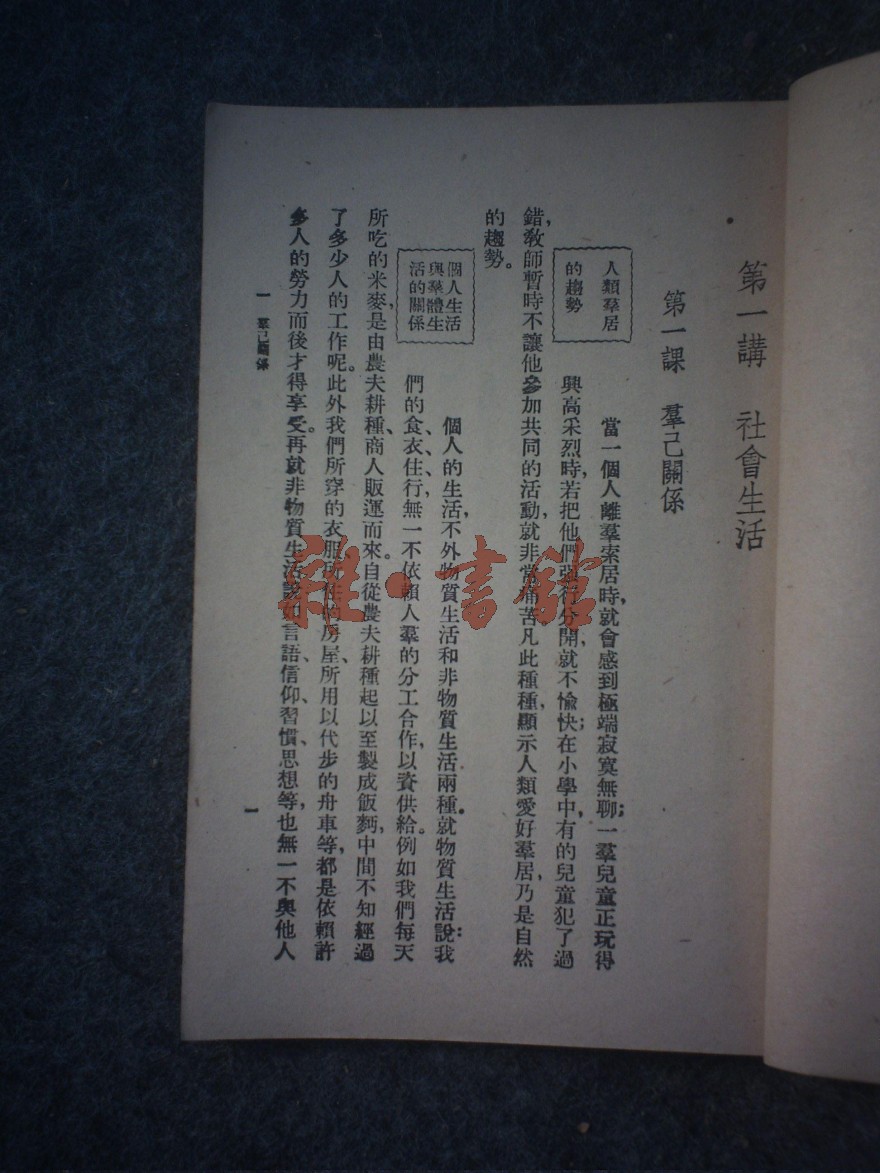 第一講　社會生活
第一課　羣己關係
人類羣居
的趨勢
當一個人離羣索居時，就會感到極端寂寞無聊；一羣兒童正玩得
興高采烈時，若把他們強行分開，就不愉快；在小學中，有的兒童犯了過
錯，教師暫時不讓他參加共同的活動，就非常痛苦。凡此種種，顯示人類愛好羣居，乃是自然
的趨勢。
個人生活
與羣體生
活的關係
個人的生活，不外物質生活和非物質生活兩種。就物質生活說：我
們的食、衣、住、行，無一不依賴人羣的分工合作，以資供給。例如我們每天
所吃的米麥，是由農夫耕種、商人販運而來。自從農夫耕種起以至製成飯麪，中間不知經過
了多少人的工作呢。此外我們所穿的衣服、所住的房屋、所用以代步的舟車等，都是依賴許
多人的勞力而後才得享受。再就非物質生活說，如言語、信仰、習慣、思想等，也無一不與他人
一　羣己關係
一
雜·書館